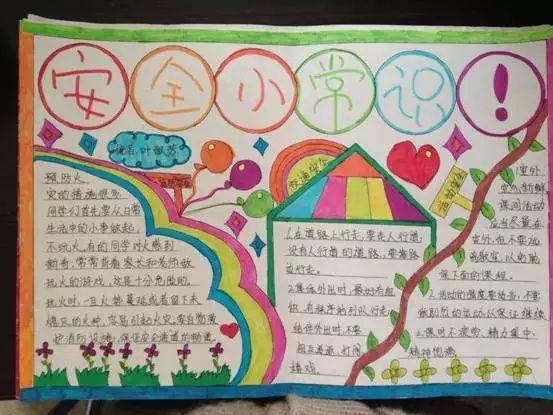 安全小常识!
预防火
灾的措施很多
同学们首先要从日常
生活中的小事做起,
不玩火,有的同学对火感到
新奇,常常背着家长和老师做
玩火的游戏,这是十分危险的,
玩火时,一旦火势蔓延或者留下未
熄灭的火种,容易引起火灾,要自觉爱
护消防设施,保证安全通道的畅通。
交通安全
1.在道路上行走,要走人行道,
没有人行道的道路,要靠路
边行走。
2.集体外出时,最好有组
织、有秩序的列队行走;
结伴外出时,不要
相互追逐、打闹
嬉戏
室外
空气新鲜
课间活动
应当尽量在
室外,但不要远
离教室,以免耽
误下面的课程。
2.活动的强度要适当,不要
做剧烈的运动,以保证继续
上课时不疲劳,精力集中、
精神饱满